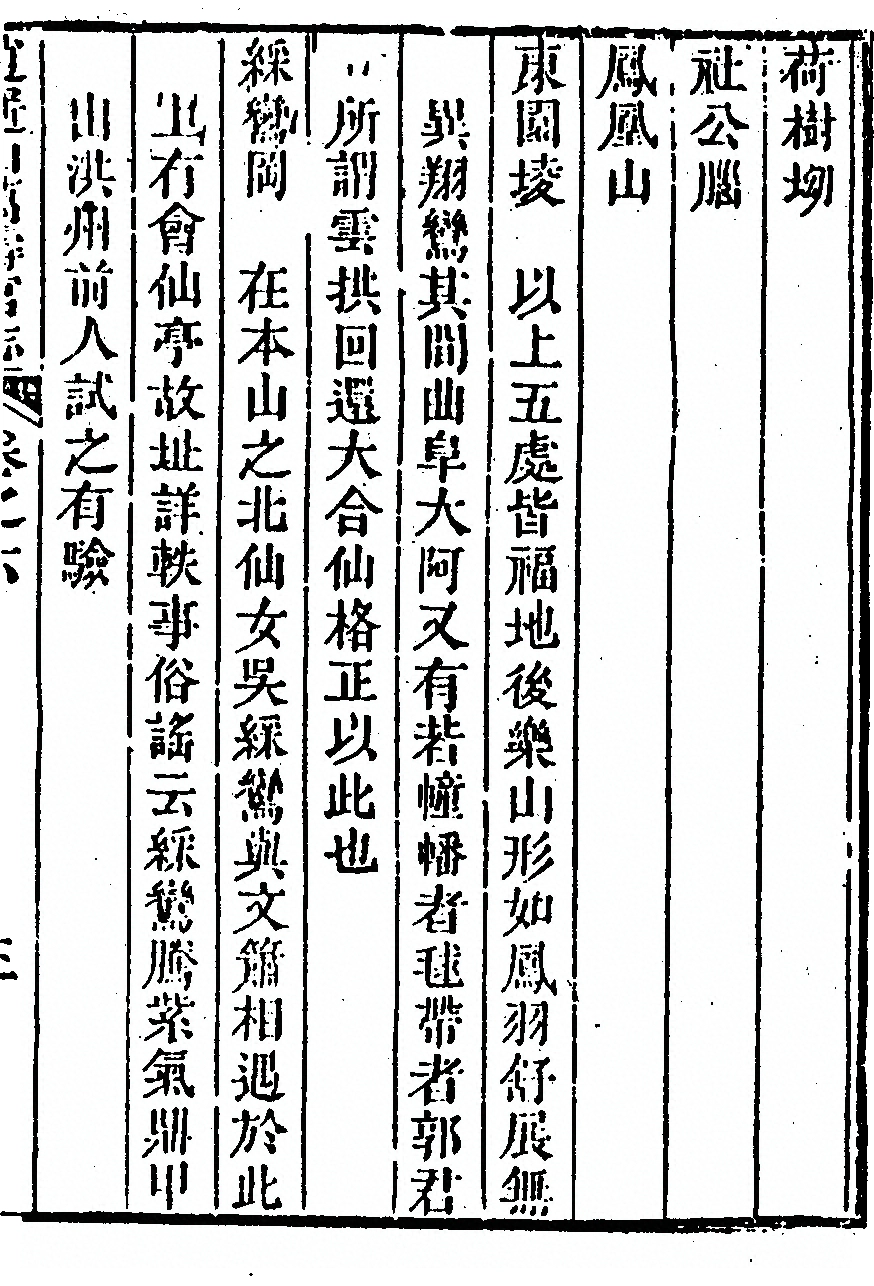 荷樹坳
社公腦
鳳凰山
東園堎　以上五處皆福地後樂山形如鳳羽舒展無
異翔鸞其間曲阜大阿又有若幢幡者毬帶者郭君
所謂雲拱回還大合仙格正以此也
綵鸞岡　在本山之北仙女吳綵鸞與文簫相遇於此
上有會仙亭故址詳軼事俗謠云綵鸞騰紫氣鼎甲
出洪州前人試之有驗
卷之六